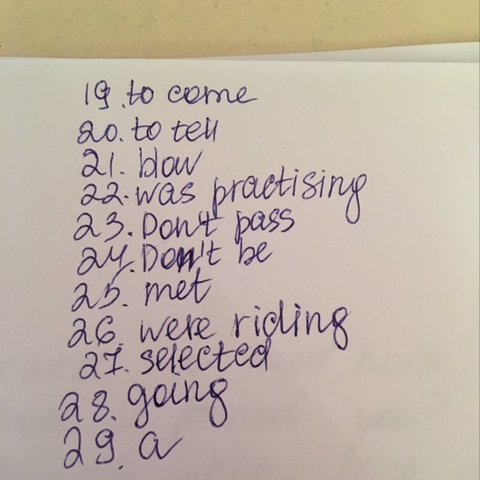 19. to come
20. to tell
21. blow
22. was practising
23. Don't pass
24. Don't be
25. met
26. were riding
27. selected
28. going
29. a